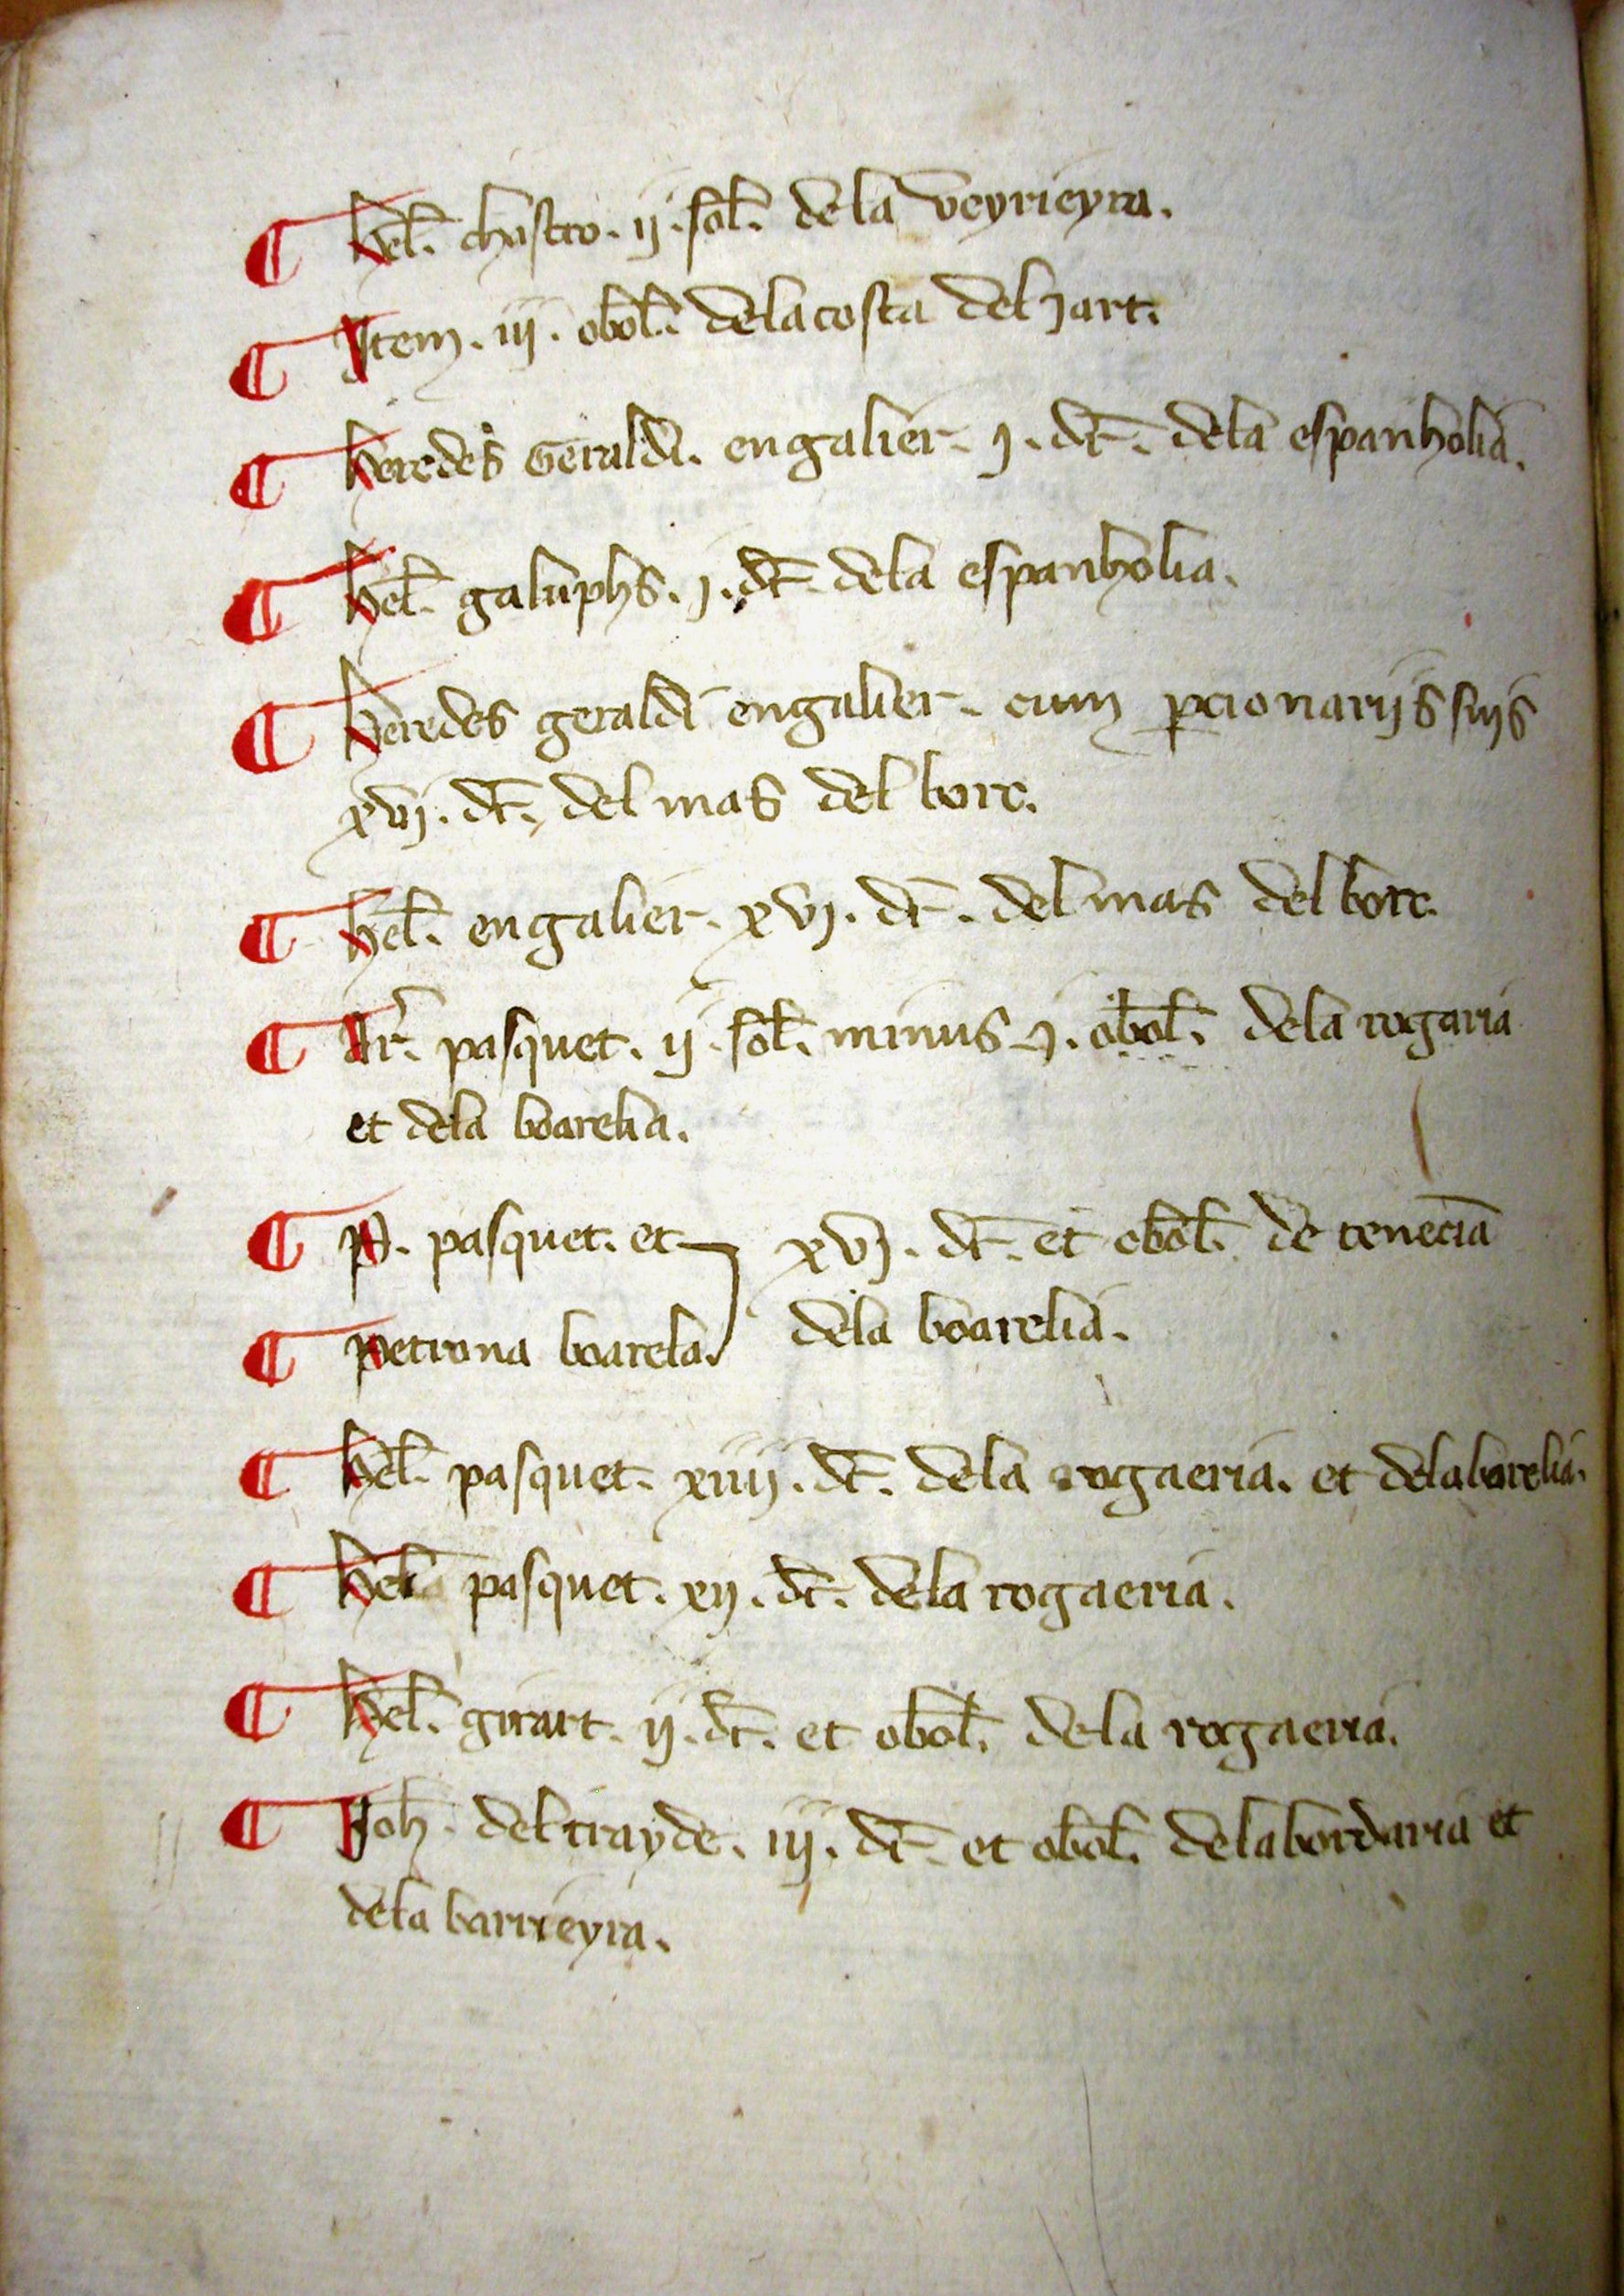 ¶ hel̄. chastro. ij. sol̄. de la veyrieyra.
¶ Item. iij. obol̄. de la costa del jart.
¶ heredes Geraldi. engalier. j. dr̄. de la espanholia.
¶ hel̄. galuphs. j. dr̄. de la espanholia.
¶ heredes geraldi engalier. cum ꝑcionariis suis
xvj. dr̄. del mas del borc.
¶ hel̄. engalier. xvj. dr̄. del mas del borc.
¶ Ar̄. pasquet. ij. sol̄. minus j. obol̄. de la rogaria
et de la boarelia.
¶ P. pasquet. et xvj. dr̄. et obol̄. de tenēcia
¶ petrona boarela. de la boarelia.
¶ hel̄. pasquet. xiiij. dr̄. de la rogaeria. et de la borelia.
¶ pasquet. xij. dr̄. de la rogaeria.
¶ hel̄. girart. ij. dr̄. et obol̄. de la rogaeria.
¶ Joh̄. del trayde. iij. dr̄. et obol̄. de la bordaria et
de la barrieyra.